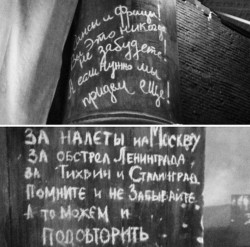 и фрицы!
Это никогда
не забудете.
А если нужно мы
придем еще!
ЗА НАЛЕТЫ НА МОСКВУ
ЗА ОБСТРЕЛ ЛЕНИНГРАДА
ЗА ТИХВИН И СТАЛИНГРАД
ПОМНИТЕ И НЕ ЗАБЫВАЙТЕ
А ТО МОЖЕМ И
ПОВТОРИТЬ